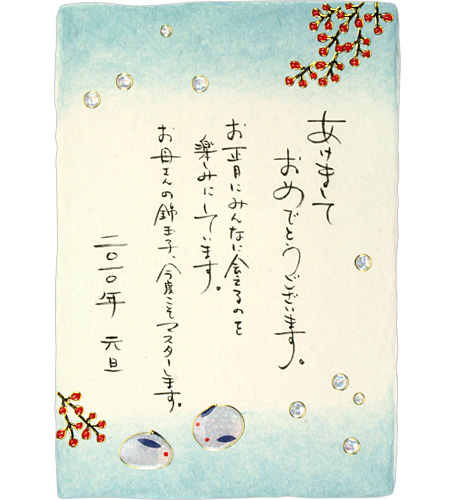 あけまして
おめでとうございます。
お正月にみんなに会えるのを
楽しみにしています。
お母さんの錦玉子、今度こそマスターします。
二〇一〇年 元旦